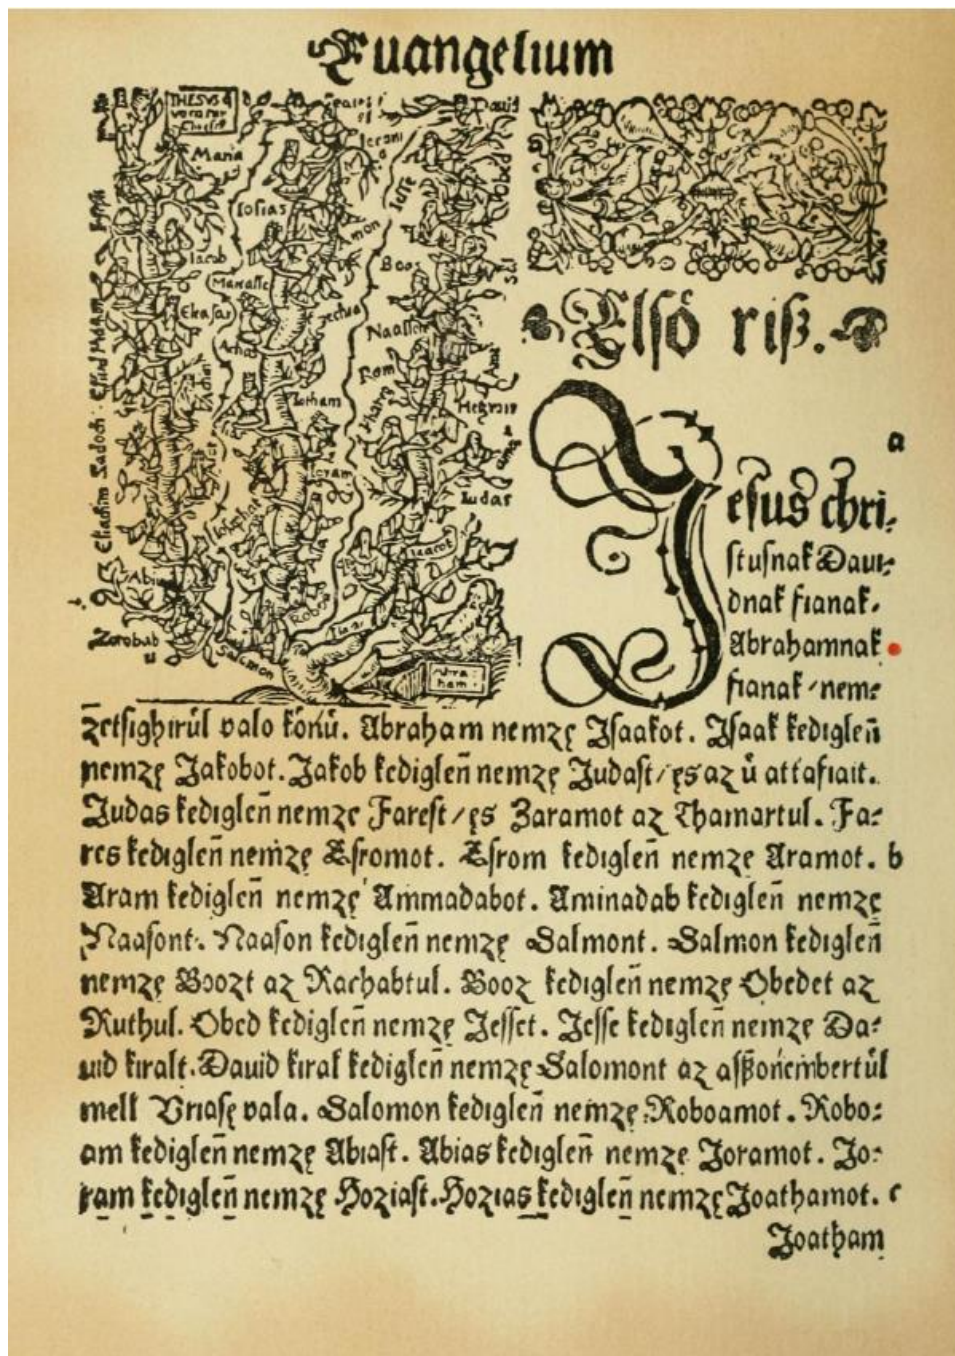 Euangelium
IHESVS q
Maria
Iosias
Amon
Iesse
Obed
Dauid
Iacob
Manasse
Boos
Eleasar
Naasson
Achas
Rom
Ioram
Iudas
Zorobab
Salmon
Abra
ham
Elsó riß.
a
Jesus chri-
stusnak Daui-
dnak fianak,
Abrahamnak
fianak / nem-
zetsighirűl valo kőnű. Abraham nemzę Jsaakot. Jsaak kediglen̄
nemzę Jakobot. Jakob kediglen̄ nemzę Judast / ęs az ű attafiait.
Judas kediglen̄ nemzę Farest / ęs Zaramot az Thamartul. Fa-
res kediglen̄ nemzę Esromot. Esrom kediglen̄ nemzę Aramot. b
Aram kediglen̄ nemzę Ammadabot. Aminadab kediglen̄ nemzę
Naasont. Naason kediglen̄ nemzę Salmont. Salmon kediglen̄
nemzę Boozt az Rachabtul. Booz kediglen̄ nemzę Obedet az
Ruthul. Obed kediglen̄ nemzę Jesset. Jesse kediglen̄ nemzę Da-
uid kiralt. Dauid kiral kediglen̄ nemzę Salomont az aßßonémbertűl
mell Vriasę vala. Salomon kediglen̄ nemzę Roboamot. Robo-
am kediglen̄ nemzę Abiast. Abias kediglen̄ nemzę Joramot. Jo-
ram kediglen̄ nemzę Hoziast. Hozias kediglen̄ nemzę Joathamot. c
Joatham